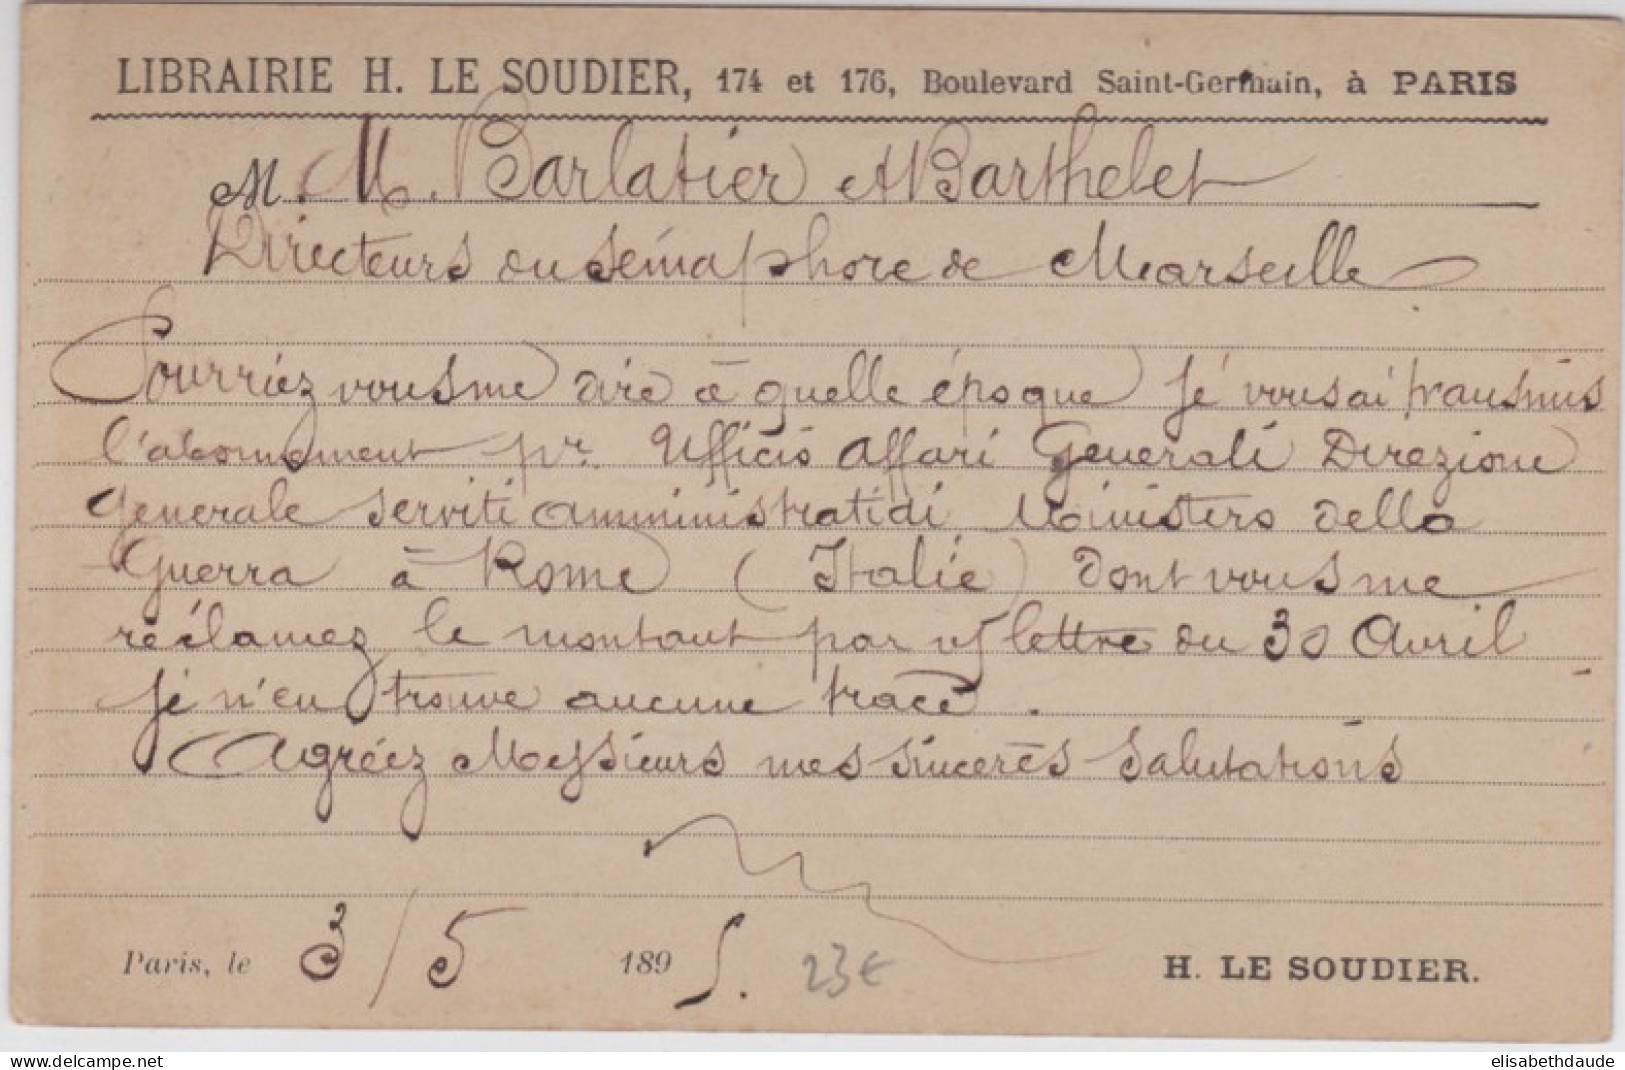 LIBRAIRIE H. LE SOUDIER, 174 et 176, Boulevard Saint-Germain, à PARIS
M. M. Barlatier et Barthelet
Directeurs du sémaphore de Marseille
Pourriez vous me dire à quelle époque je vous ai transmis
l'abonnement pr. Ufficio Affari Generali Direzione
Generale Serviti amministratidi Ministero della
Guerra à Rome (Italie) dont vous me
réclamez le montant par v/ lettre du 30 Avril
je n'en trouve aucune trace.
Agréez Messieurs mes sincères Salutations
Paris, le 3/5 1895. 23€ H. LE SOUDIER.
https://www.delcampe.net elisabethdaude